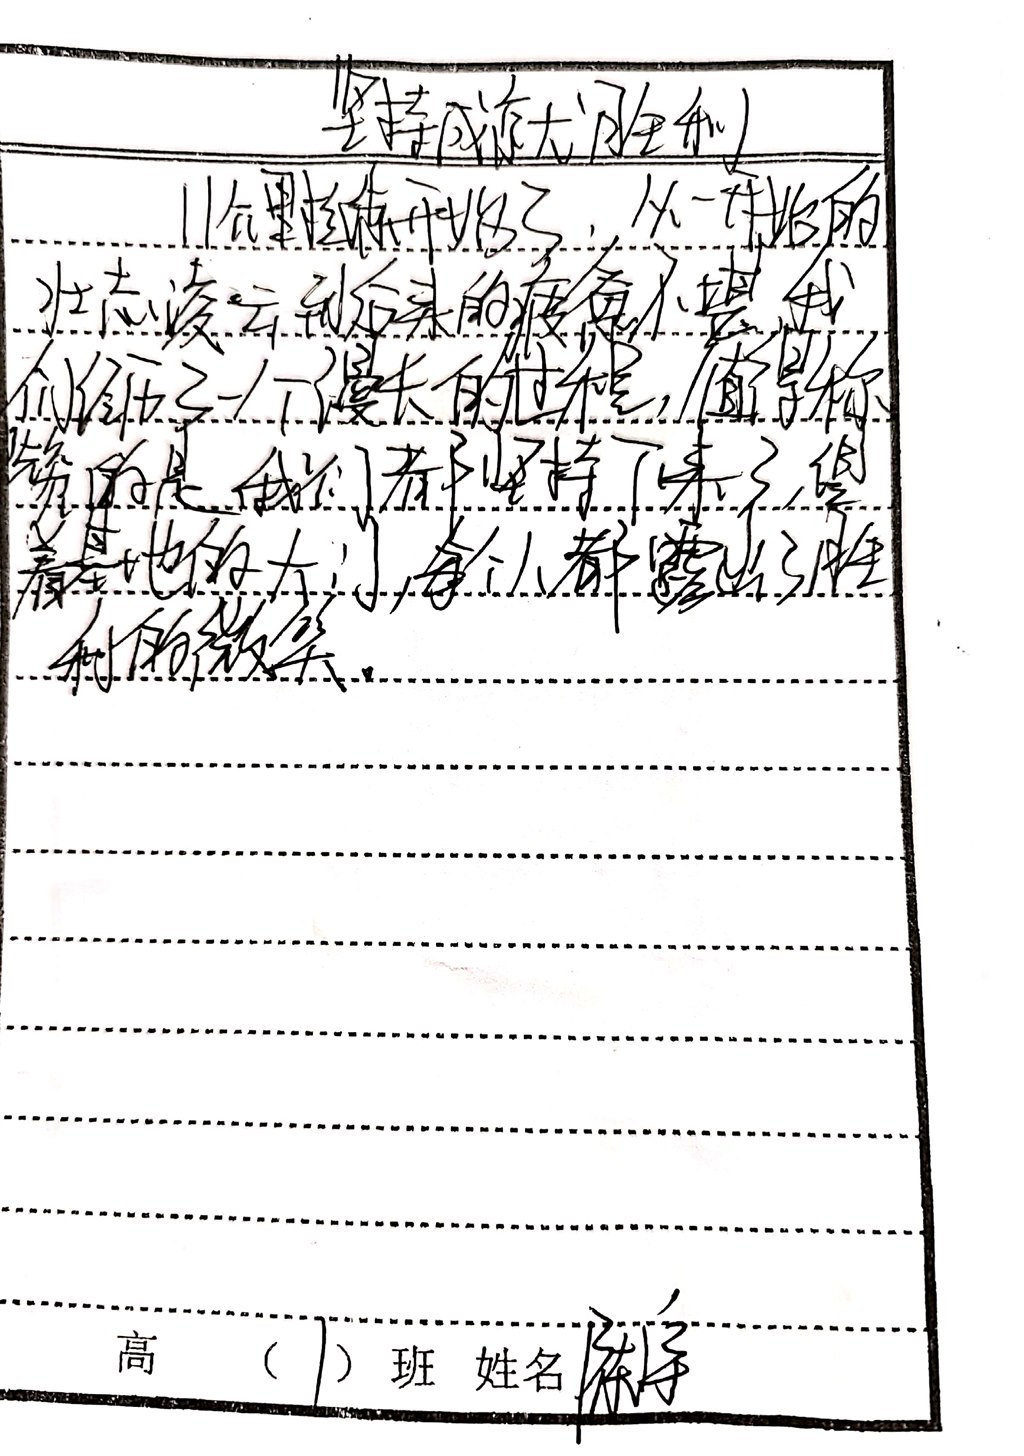 坚持成就大胜利
11公里拉练开始了，从一开始的
壮志凌云到后来的疲惫不堪，我
们经历了一个漫长的过程，值得称
赞的是，我们都坚持了下来了，望
着基地的大门，每个人都露出了胜
利的微笑.
高 （1）班 姓名 陈